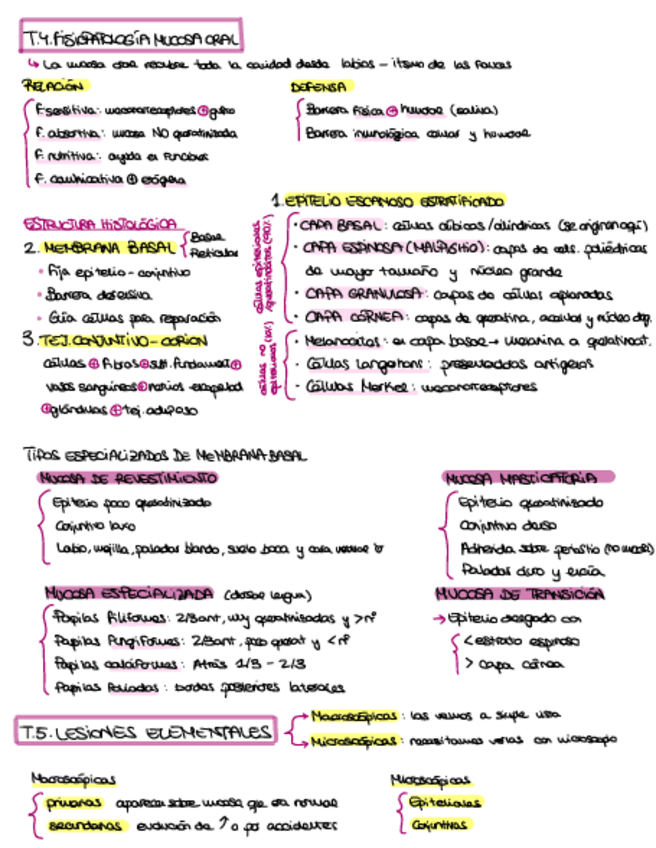 T.4. FISIOPATOLOGÍA MUCOSA ORAL
↳ La mucosa oral recubre toda la cavidad desde labios - itsmo de las fauces
RELACIÓN
F. sensitiva: mecanorreceptores ⊕ gusto
F. absortiva: mucosa NO queratinizada
F. nutritiva: ayuda en funciones
F. comunicativa ⊕ exógena
DEFENSA
Barrera física ⊕ humoral (saliva)
Barrera inmunológica celular y humoral
ESTRUCTURA HISTOLÓGICA
1. EPITELIO ESCAMOSO ESTRATIFICADO
células epiteliales queratinocitos (90%)
• CAPA BASAL: células cúbicas/cilíndricas (se originan aquí)
• CAPA ESPINOSA (MALPIGHIO): capas de cels. poliédricas
de mayor tamaño y núcleo grande
• CAPA GRANULOSA: capas de células aplanadas
• CAPA CÓRNEA: capas de queratina, acelular y núcleo deg.
células no epiteliales (10%)
• Melanocitos: en capa basal → melanina a queratinocit.
• Células Langerhans: presentadoras antígenos
• Células Merkel: mecanorreceptores
2. MEMBRANA BASAL { Basal
Reticular
• Fija epitelio-conjuntivo
• Barrera defensiva
• Guía células para reparación
3. TEJ. CONJUNTIVO - CORION
células ⊕ fibras ⊕ sust. fundament ⊕
vasos sanguíneos ⊕ nervios
⊕ glándulas ⊕ tej. adiposo
TIPOS ESPECIALIZADOS DE MEMBRANA BASAL
MUCOSA DE REVESTIMIENTO
Epitelio poco queratinizado
Conjuntivo laxo
Labio, mejilla, paladar blando, suelo boca y cara ventral
MUCOSA MASTICATORIA
Epitelio queratinizado
Conjuntivo denso
Adherida sobre periostio (no muscl)
Paladar duro y encía
MUCOSA ESPECIALIZADA (dorso lengua)
Papilas filiformes: 2/3 ant, muy queratinizadas y > nº
Papilas fungiformes: 2/3 ant, poco querat y < nº
Papilas caliciformes: Atrás 1/3 - 2/3
Papilas foliadas: bordes posteriores laterales
MUCOSA DE TRANSICIÓN
→ Epitelio delgado con
< estrato espinoso
> capa córnea
T.5. LESIONES ELEMENTALES
→ Macroscópicas: las vemos a simple vista
→ Microscópicas: necesitamos verlas con microscopio
Macroscópicas
primarias aparecen sobre mucosa que era normal
secundarias evolución de ↑ o por accidentes
Microscópicas
Epiteliales
Conjuntivas